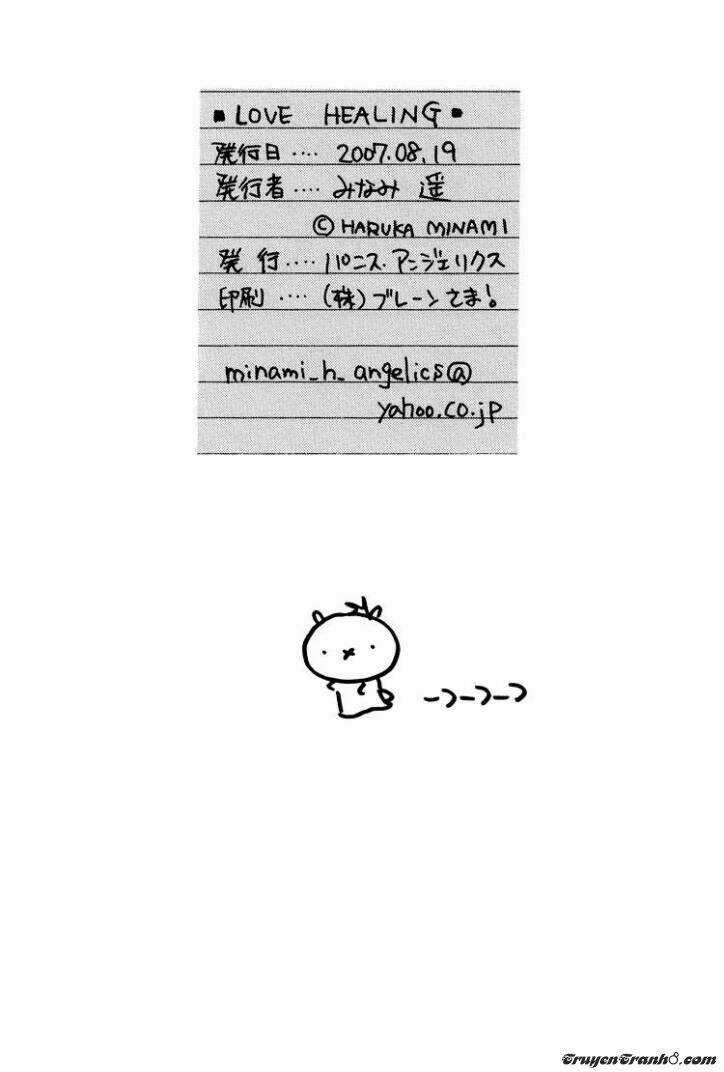 ■ LOVE HEALING ■
発行日‥‥ 2007.08.19
発行者‥‥ みなみ 遥
© HARUKA MINAMI
発 行‥‥ パニス・アンジェリクス
印刷 ‥‥ (株)ブレーンさま!
minami_h_angelics@
yahoo.co.jp
TruyenTranh8.com